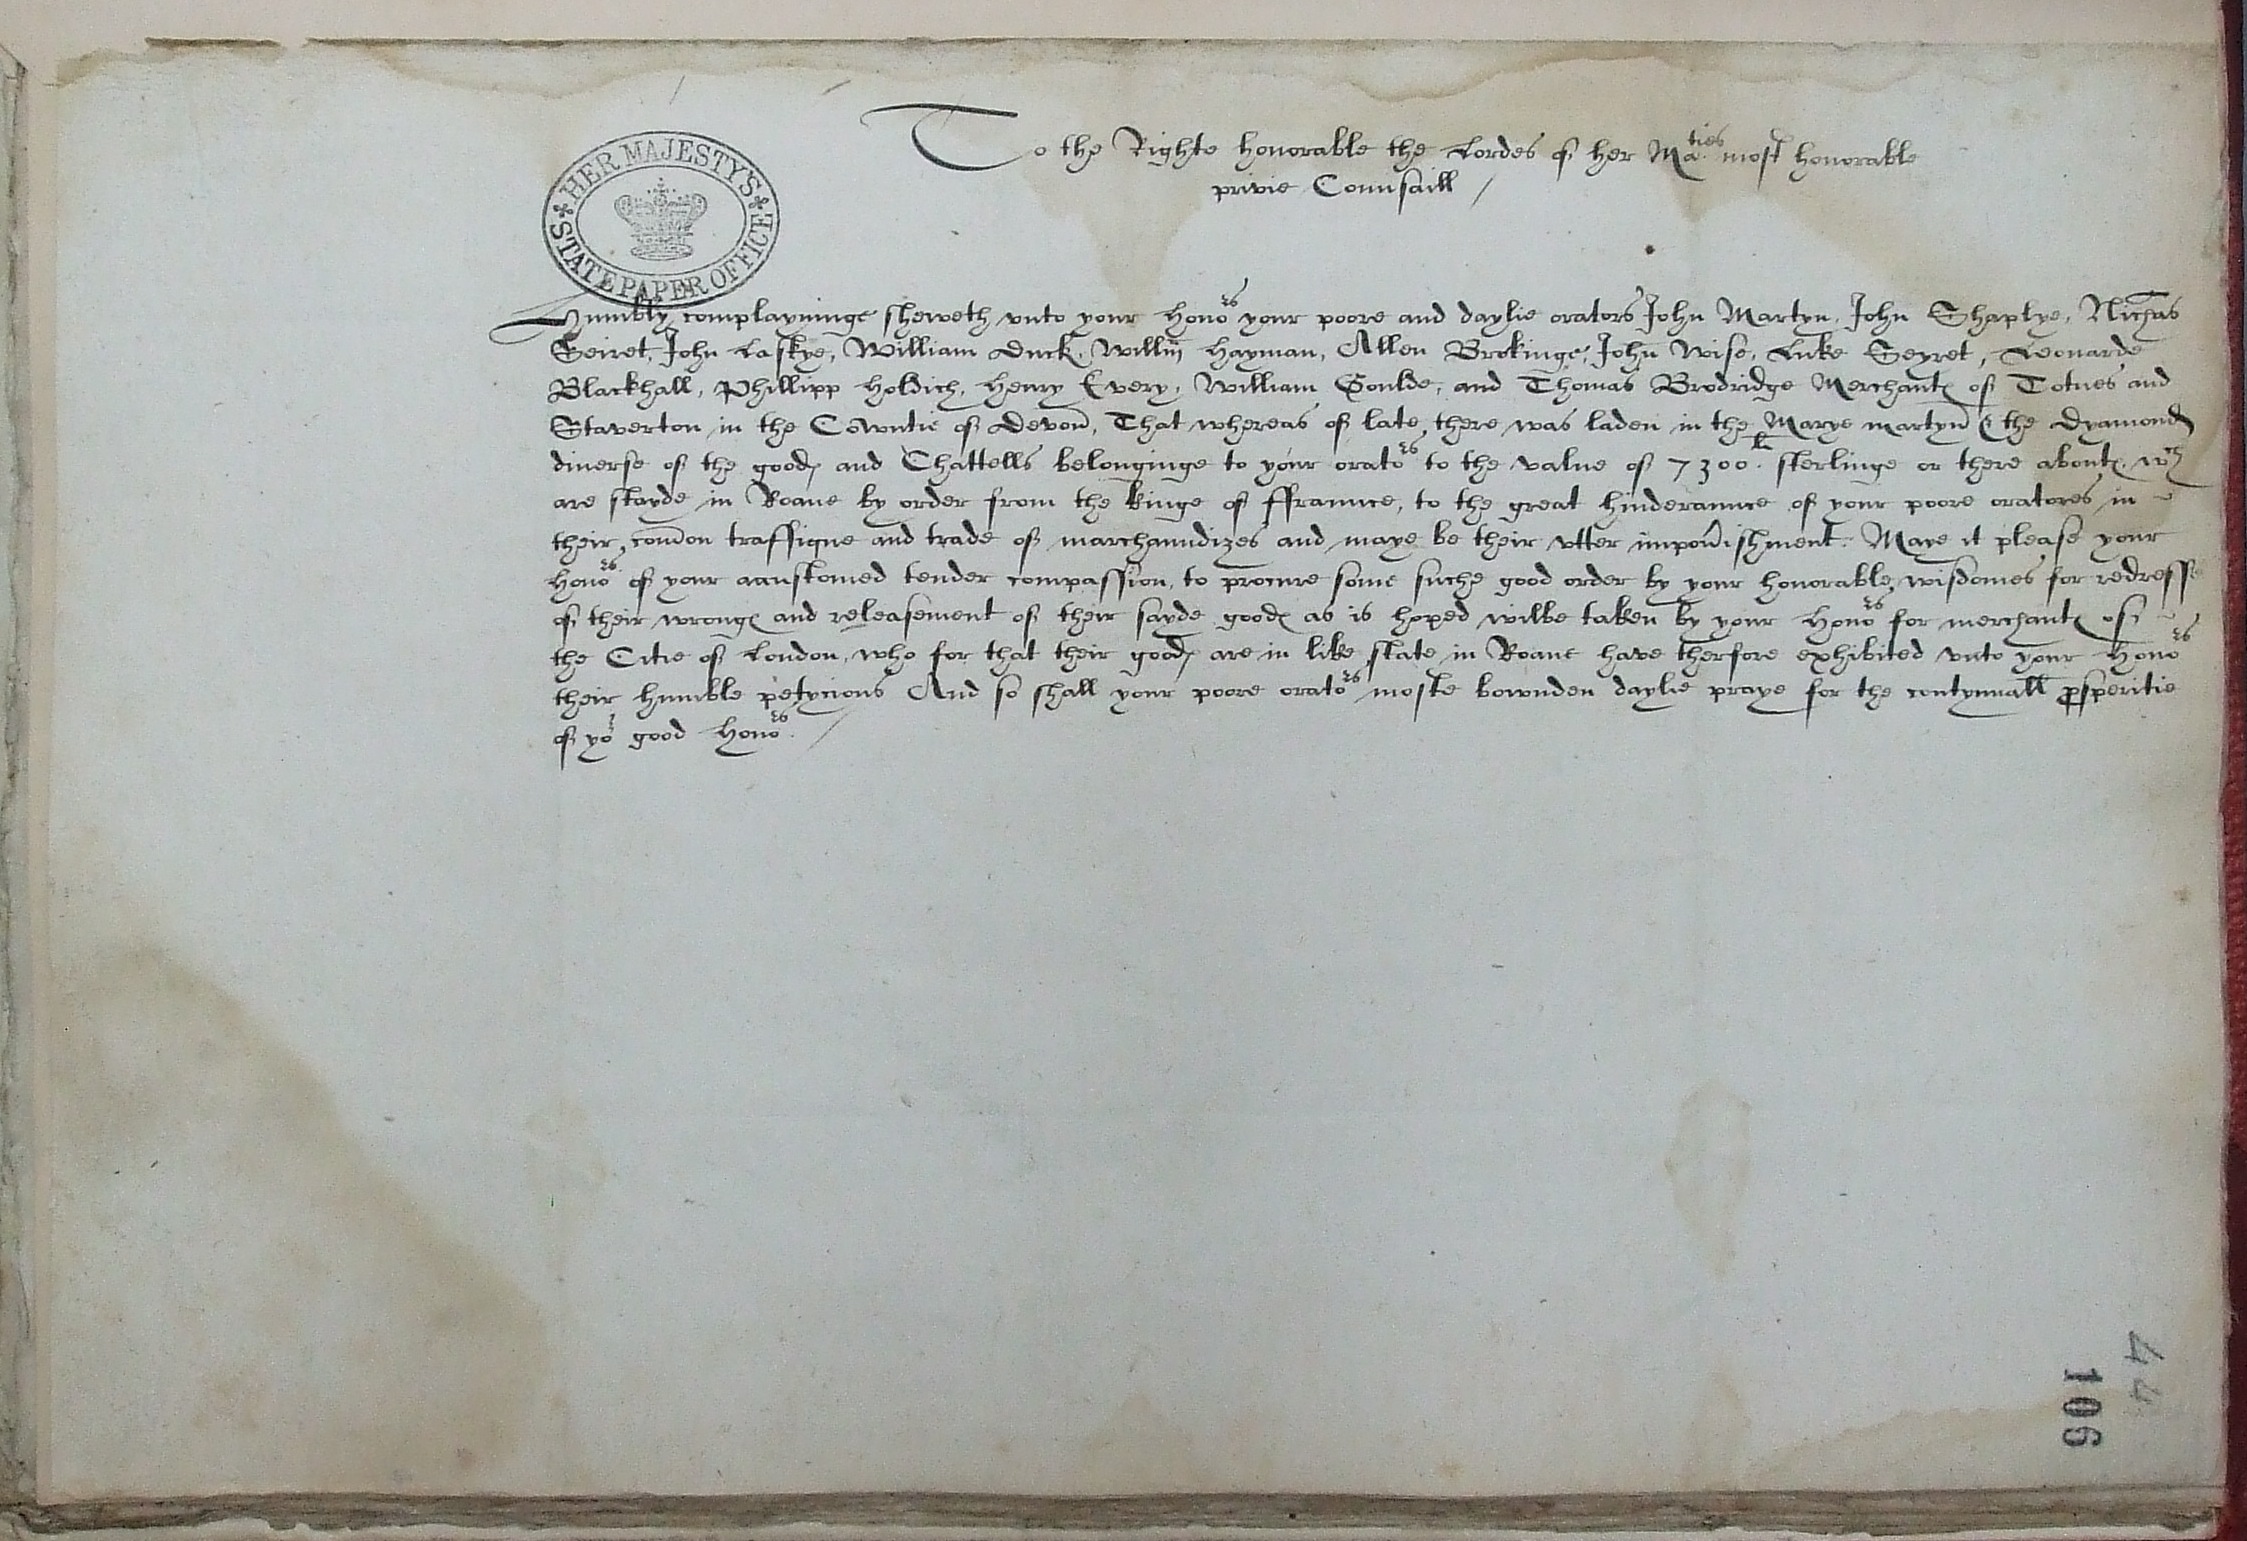 To the Righte honorable the Lordes of her Ma.ties most honorable
privie Counsaill /
HER MAJESTY'S STATE PAPER OFFICE
Humbly complayninge sheweth vnto your Honors your poore and daylie orators John Martyn, John Shaplye, Nichas
Seiret, John Laskye, William Duck, Willm Hayman, Allen Brokinge, John Wise, Luke Seyret, Leonarde
Blackhall, Phillipp Holdich, Henry Every, William Goulde, and Thomas Brodridge Merchantes of Totnes and
Staverton in the Cowntie of Devon, That whereas of late there was laden in the Marye martyn & the Dyamond
diuerse of the goodes and Chattells belonginge to your orators to the value of 7300.li sterlinge or there aboutes. wch
are stayde in Roane by order from the kinge of ffraunce, to the great hinderaunce of your poore oratores in
their comon traffique and trade of marchaundizes and maye be their vtter impouishment: Maye it please your
Honors of your accustomed tender compassion, to procure some suche good order by your honorable wisdomes for redresse
of their wronges and releasement of their sayde goodes as is hoped wilbe taken by your Honors for merchantes of
the Citie of London, who for that their goodes are in like state in Roane have therfore exhibited vnto your Honors
their humble petycions And so shall your poore orators moste bownden daylie praye for the contynuall prsperitie
of yor good Honors. /
44
106